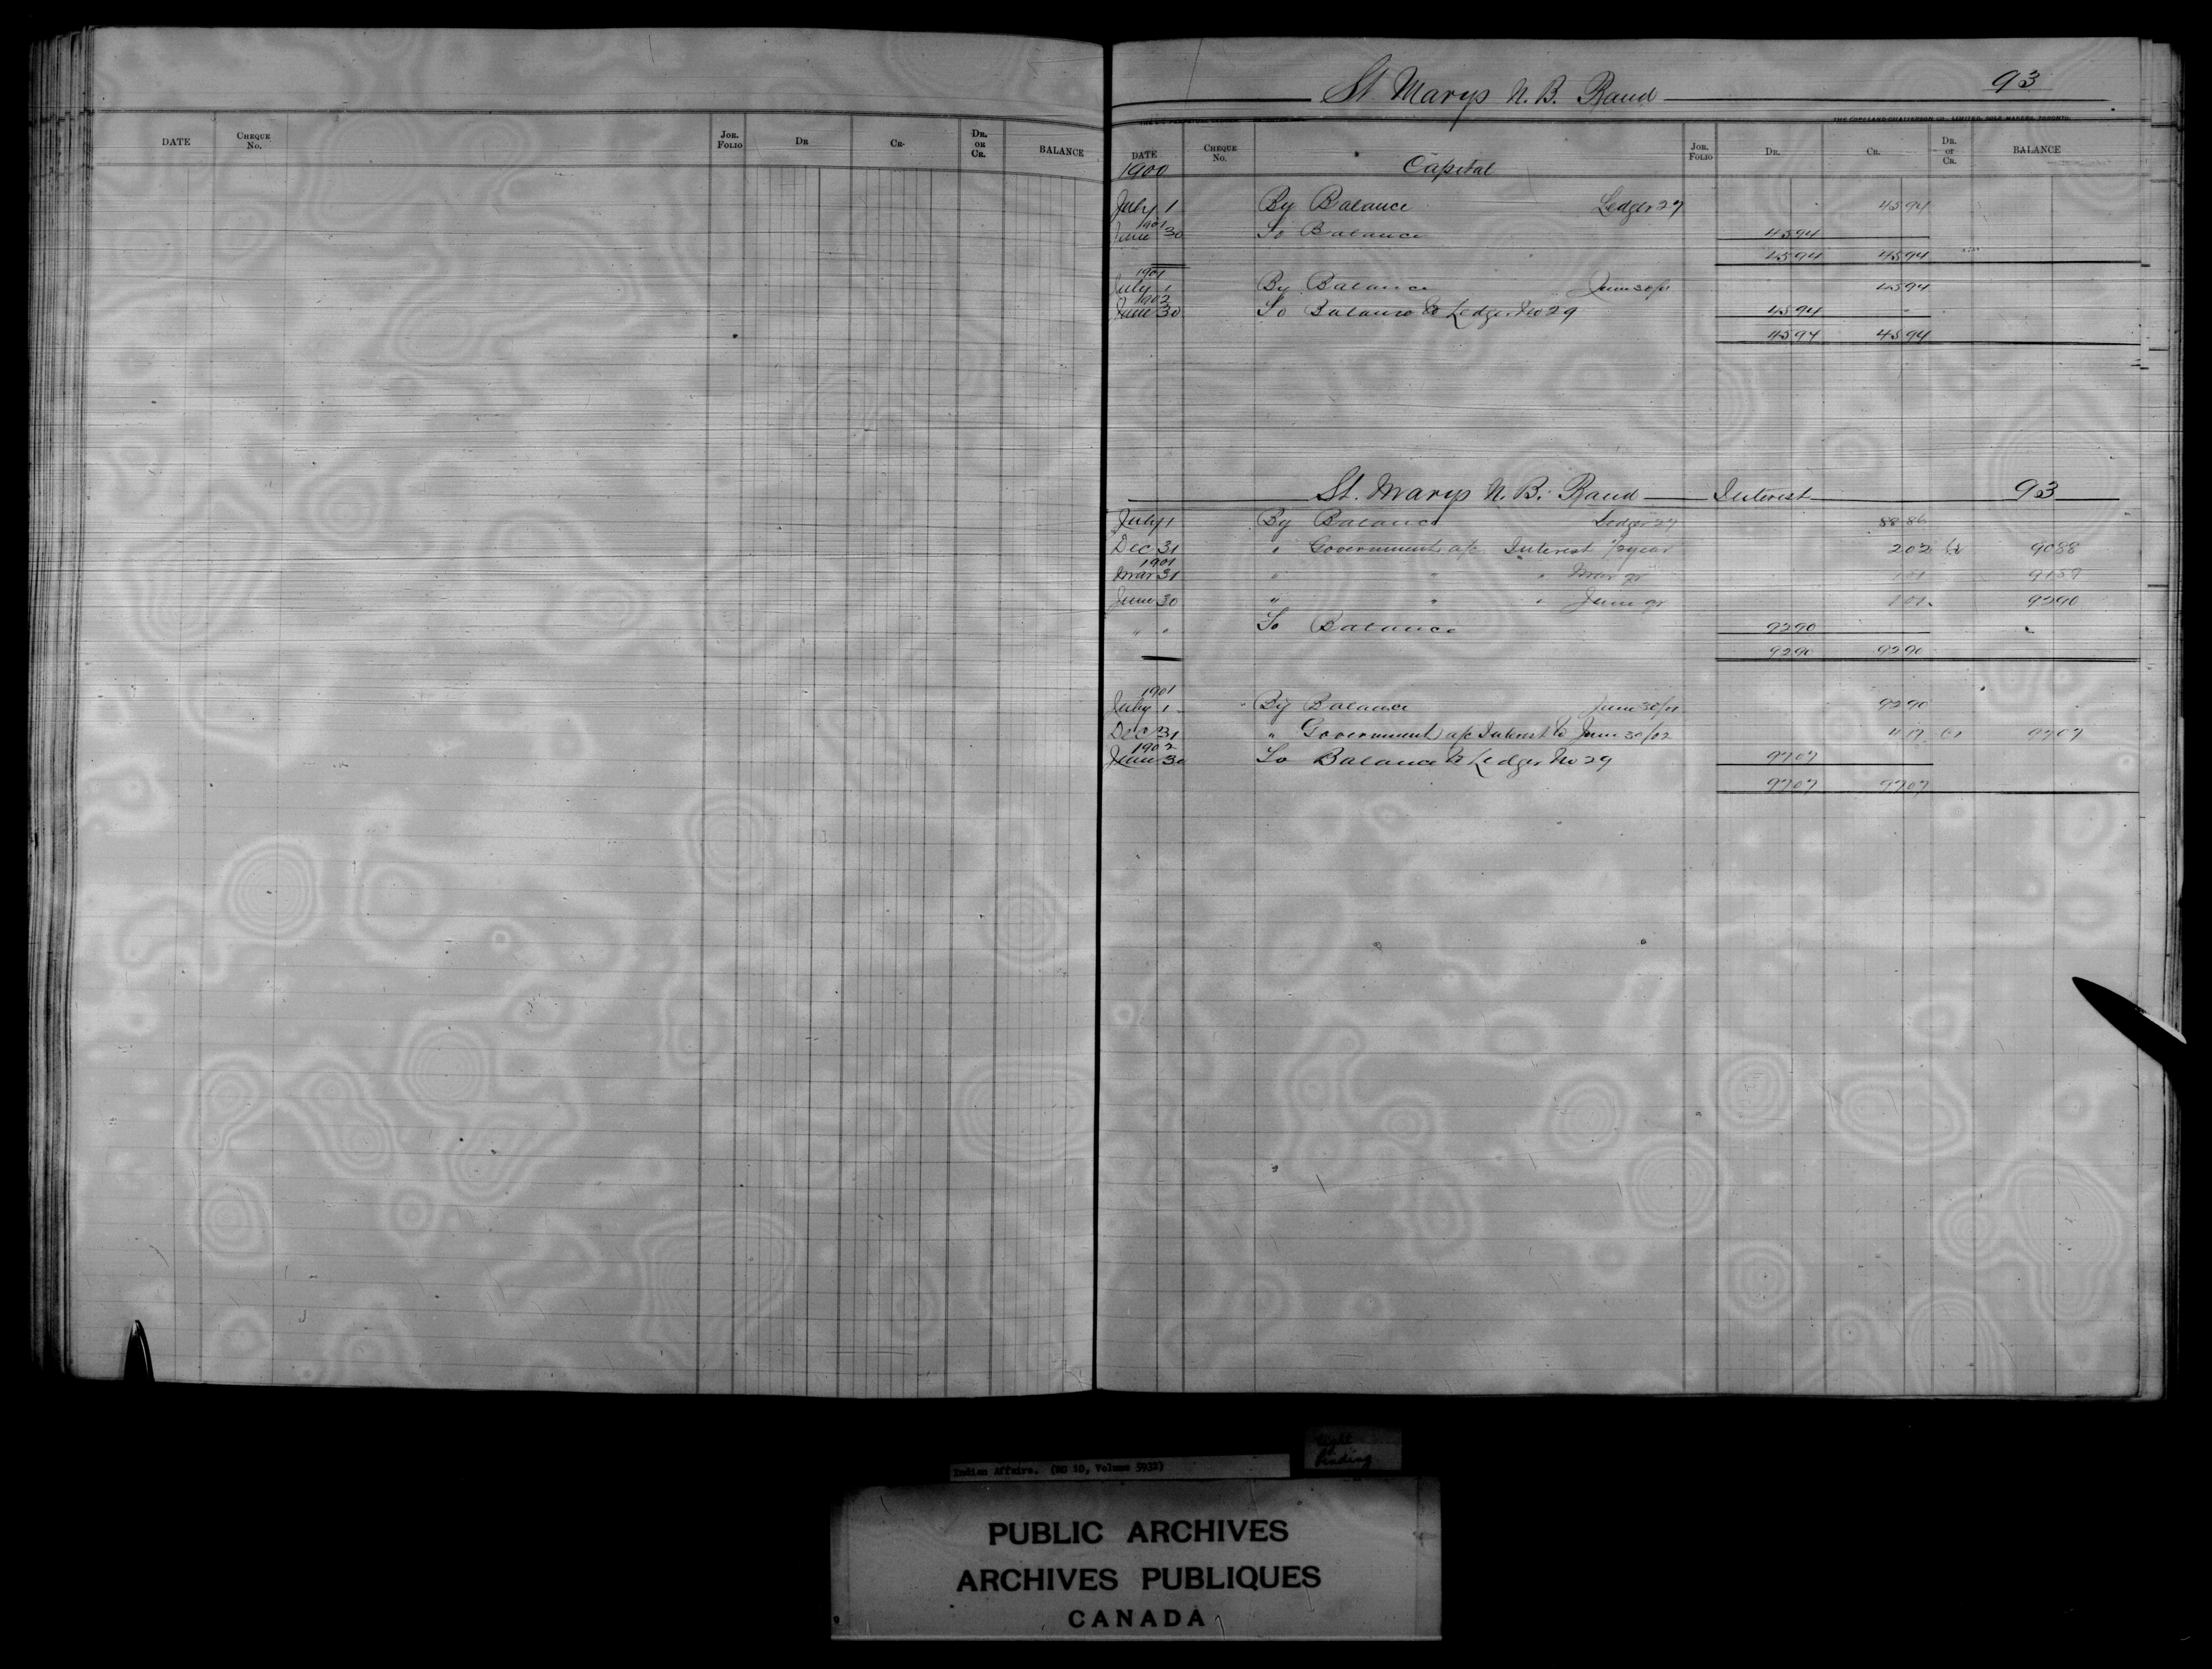 DATE CHEQUE No. JOR. FOLIO DR CR. DR. OR CR. BALANCE
St. Marys N. B. Band 93
THE COPELAND-CHATTERSON CO. LIMITED, SOLE MAKERS, TORONTO
DATE CHEQUE No. JOR. FOLIO DR. CR. DR. or CR. BALANCE
1900 Capital
July 1 By Balance Ledger 27 45 94
1901
June 30 To Balance 45 94
45 94 45 94
1901
July 1 By Balance June 30/01 45 94
1902
June 30 To Balance to Ledger No 29 45 94
45 94 45 94
St. Marys N. B. Band Interest 93
July 1 By Balance Ledger 27 88 86
Dec 31 " Government a/c Interest 1/2 year 2 02 Cr 90 88
1901
Mar 31 " " " Mar qr 1 01 91 89
June 30 " " " June qr 1 01 92 90
" " To Balance 92 90
92 90 92 90
1901
July 1 By Balance June 30/01 92 90
Dec 31 " Government a/c Interest to June 30/02 4 17 Cr 97 07
1902
June 30 To Balance to Ledger No 29 97 07
97 07 97 07
Indian Affairs. (RG 10, Volume 5932)
Tight
Binding
PUBLIC ARCHIVES
ARCHIVES PUBLIQUES
CANADA